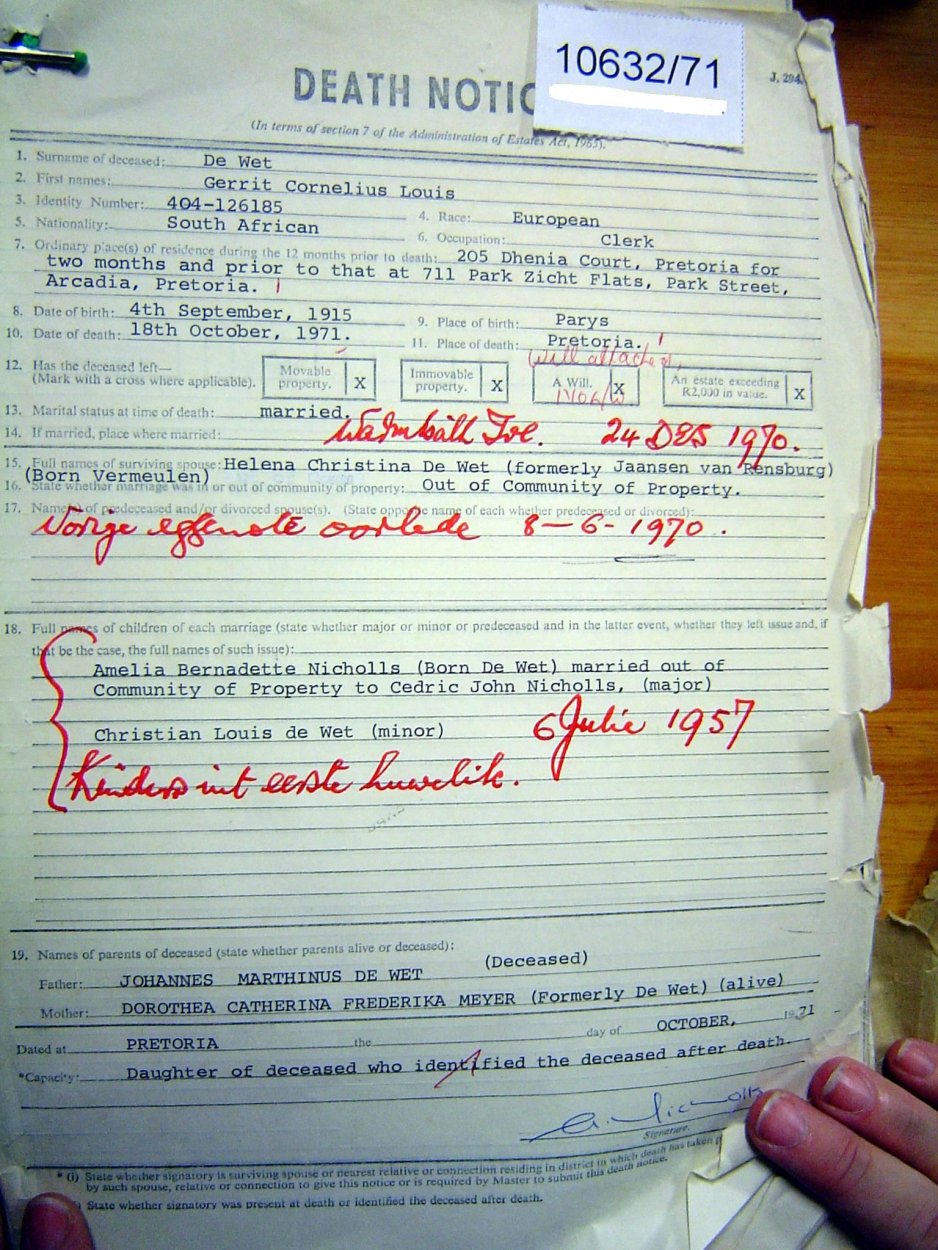 10632/71
J. 294.
DEATH NOTIC
(In terms of section 7 of the Administration of Estates Act, 1965).
1. Surname of deceased: De Wet
2. First names: Gerrit Cornelius Louis
3. Identity Number: 404-126185
4. Race: European
5. Nationality: South African
6. Occupation: Clerk
7. Ordinary place(s) of residence during the 12 months prior to death: 205 Dhenia Court, Pretoria for
two months and prior to that at 711 Park Zicht Flats, Park Street,
Arcadia, Pretoria.
8. Date of birth: 4th September, 1915
9. Place of birth: Parys
10. Date of death: 18th October, 1971.
11. Place of death: Pretoria.
Will attached
12. Has the deceased left—
(Mark with a cross where applicable).
Movable property. X
Immovable property. X
A Will. X
An estate exceeding R2,000 in value. X
13. Marital status at time of death: married.
14. If married, place where married: Warmbath Tvl. 24 DES 1970.
15. Full names of surviving spouse: Helena Christina De Wet (formerly Jaansen van Rensburg)
(Born Vermeulen)
16. State whether marriage was in or out of community of property: Out of Community of Property.
17. Name(s) of predeceased and/or divorced spouse(s). (State opposite name of each whether predeceased or divorced):
Vorige eggenote oorlede 8-6-1970.
18. Full names of children of each marriage (state whether major or minor or predeceased and in the latter event, whether they left issue and, if
that be the case, the full names of such issue):
Amelia Bernadette Nicholls (Born De Wet) married out of
Community of Property to Cedric John Nicholls, (major)
Christian Louis de Wet (minor) 6 Julie 1957
Kinders uit eerste huwelik.
19. Names of parents of deceased (state whether parents alive or deceased):
Father: JOHANNES MARTHINUS DE WET (Deceased)
Mother: DOROTHEA CATHERINA FREDERIKA MEYER (Formerly De Wet) (alive)
Dated at PRETORIA the day of OCTOBER, 1971
*Capacity: Daughter of deceased who identified the deceased after death.
A. Nicholls
Signature.
* (i) State whether signatory is surviving spouse or nearest relative or connection residing in district in which death has taken p
by such spouse, relative or connection to give this notice or is required by Master to submit this death notice.
) State whether signatory was present at death or identified the deceased after death.